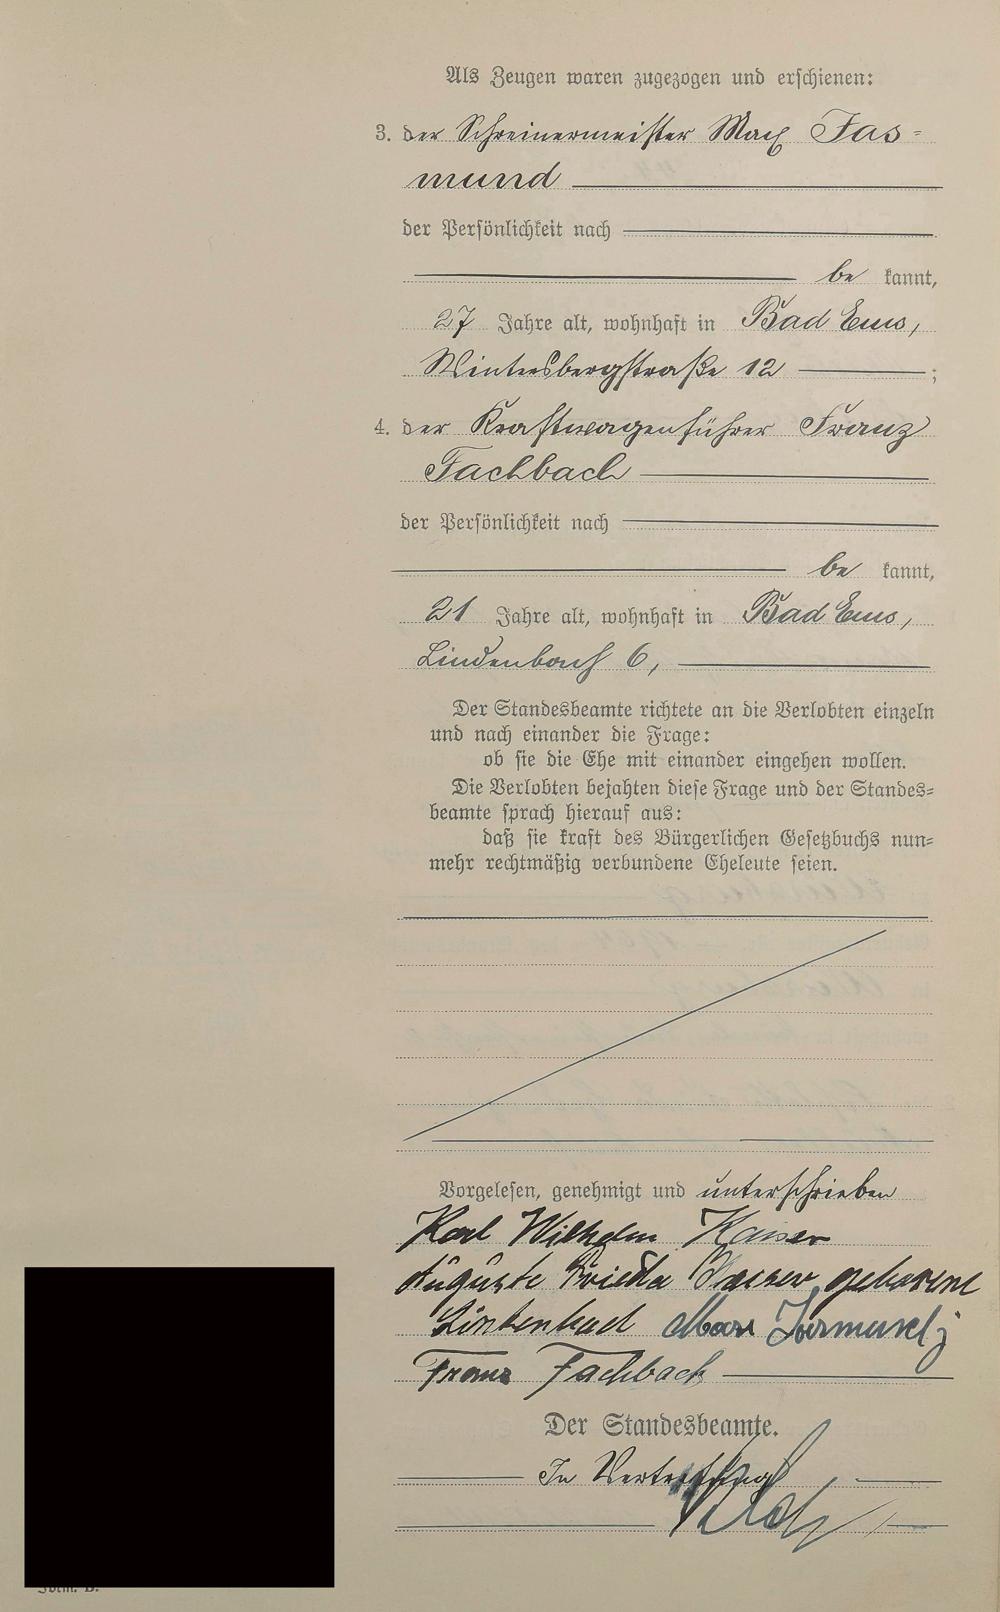 Als Zeugen waren zugezogen und erschienen:
3. der Schreinermeister Max Fas=
mund
der Persönlichkeit nach
be kannt,
27 Jahre alt, wohnhaft in Bad Ems,
Wintersbergstraße 12 ;
4. der Kraftwagenführer Franz
Fachbach
der Persönlichkeit nach
be kannt,
21 Jahre alt, wohnhaft in Bad Ems,
Lindenbach 6,
Der Standesbeamte richtete an die Verlobten einzeln
und nach einander die Frage:
ob sie die Ehe mit einander eingehen wollen.
Die Verlobten bejahten diese Frage und der Standes=
beamte sprach hierauf aus:
daß sie kraft des Bürgerlichen Gesetzbuchs nun=
mehr rechtmäßig verbundene Eheleute seien.
Vorgelesen, genehmigt und unterschrieben
Karl Wilhelm Kaiser
Auguste Frieda Kaiser geborene
Max
Franz Fachbach
Der Standesbeamte.
In Vertretung